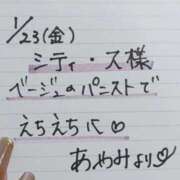 1/23(金)
シティ・ス様
ベージュのパニストで
えちえちに♡
あやみより♡